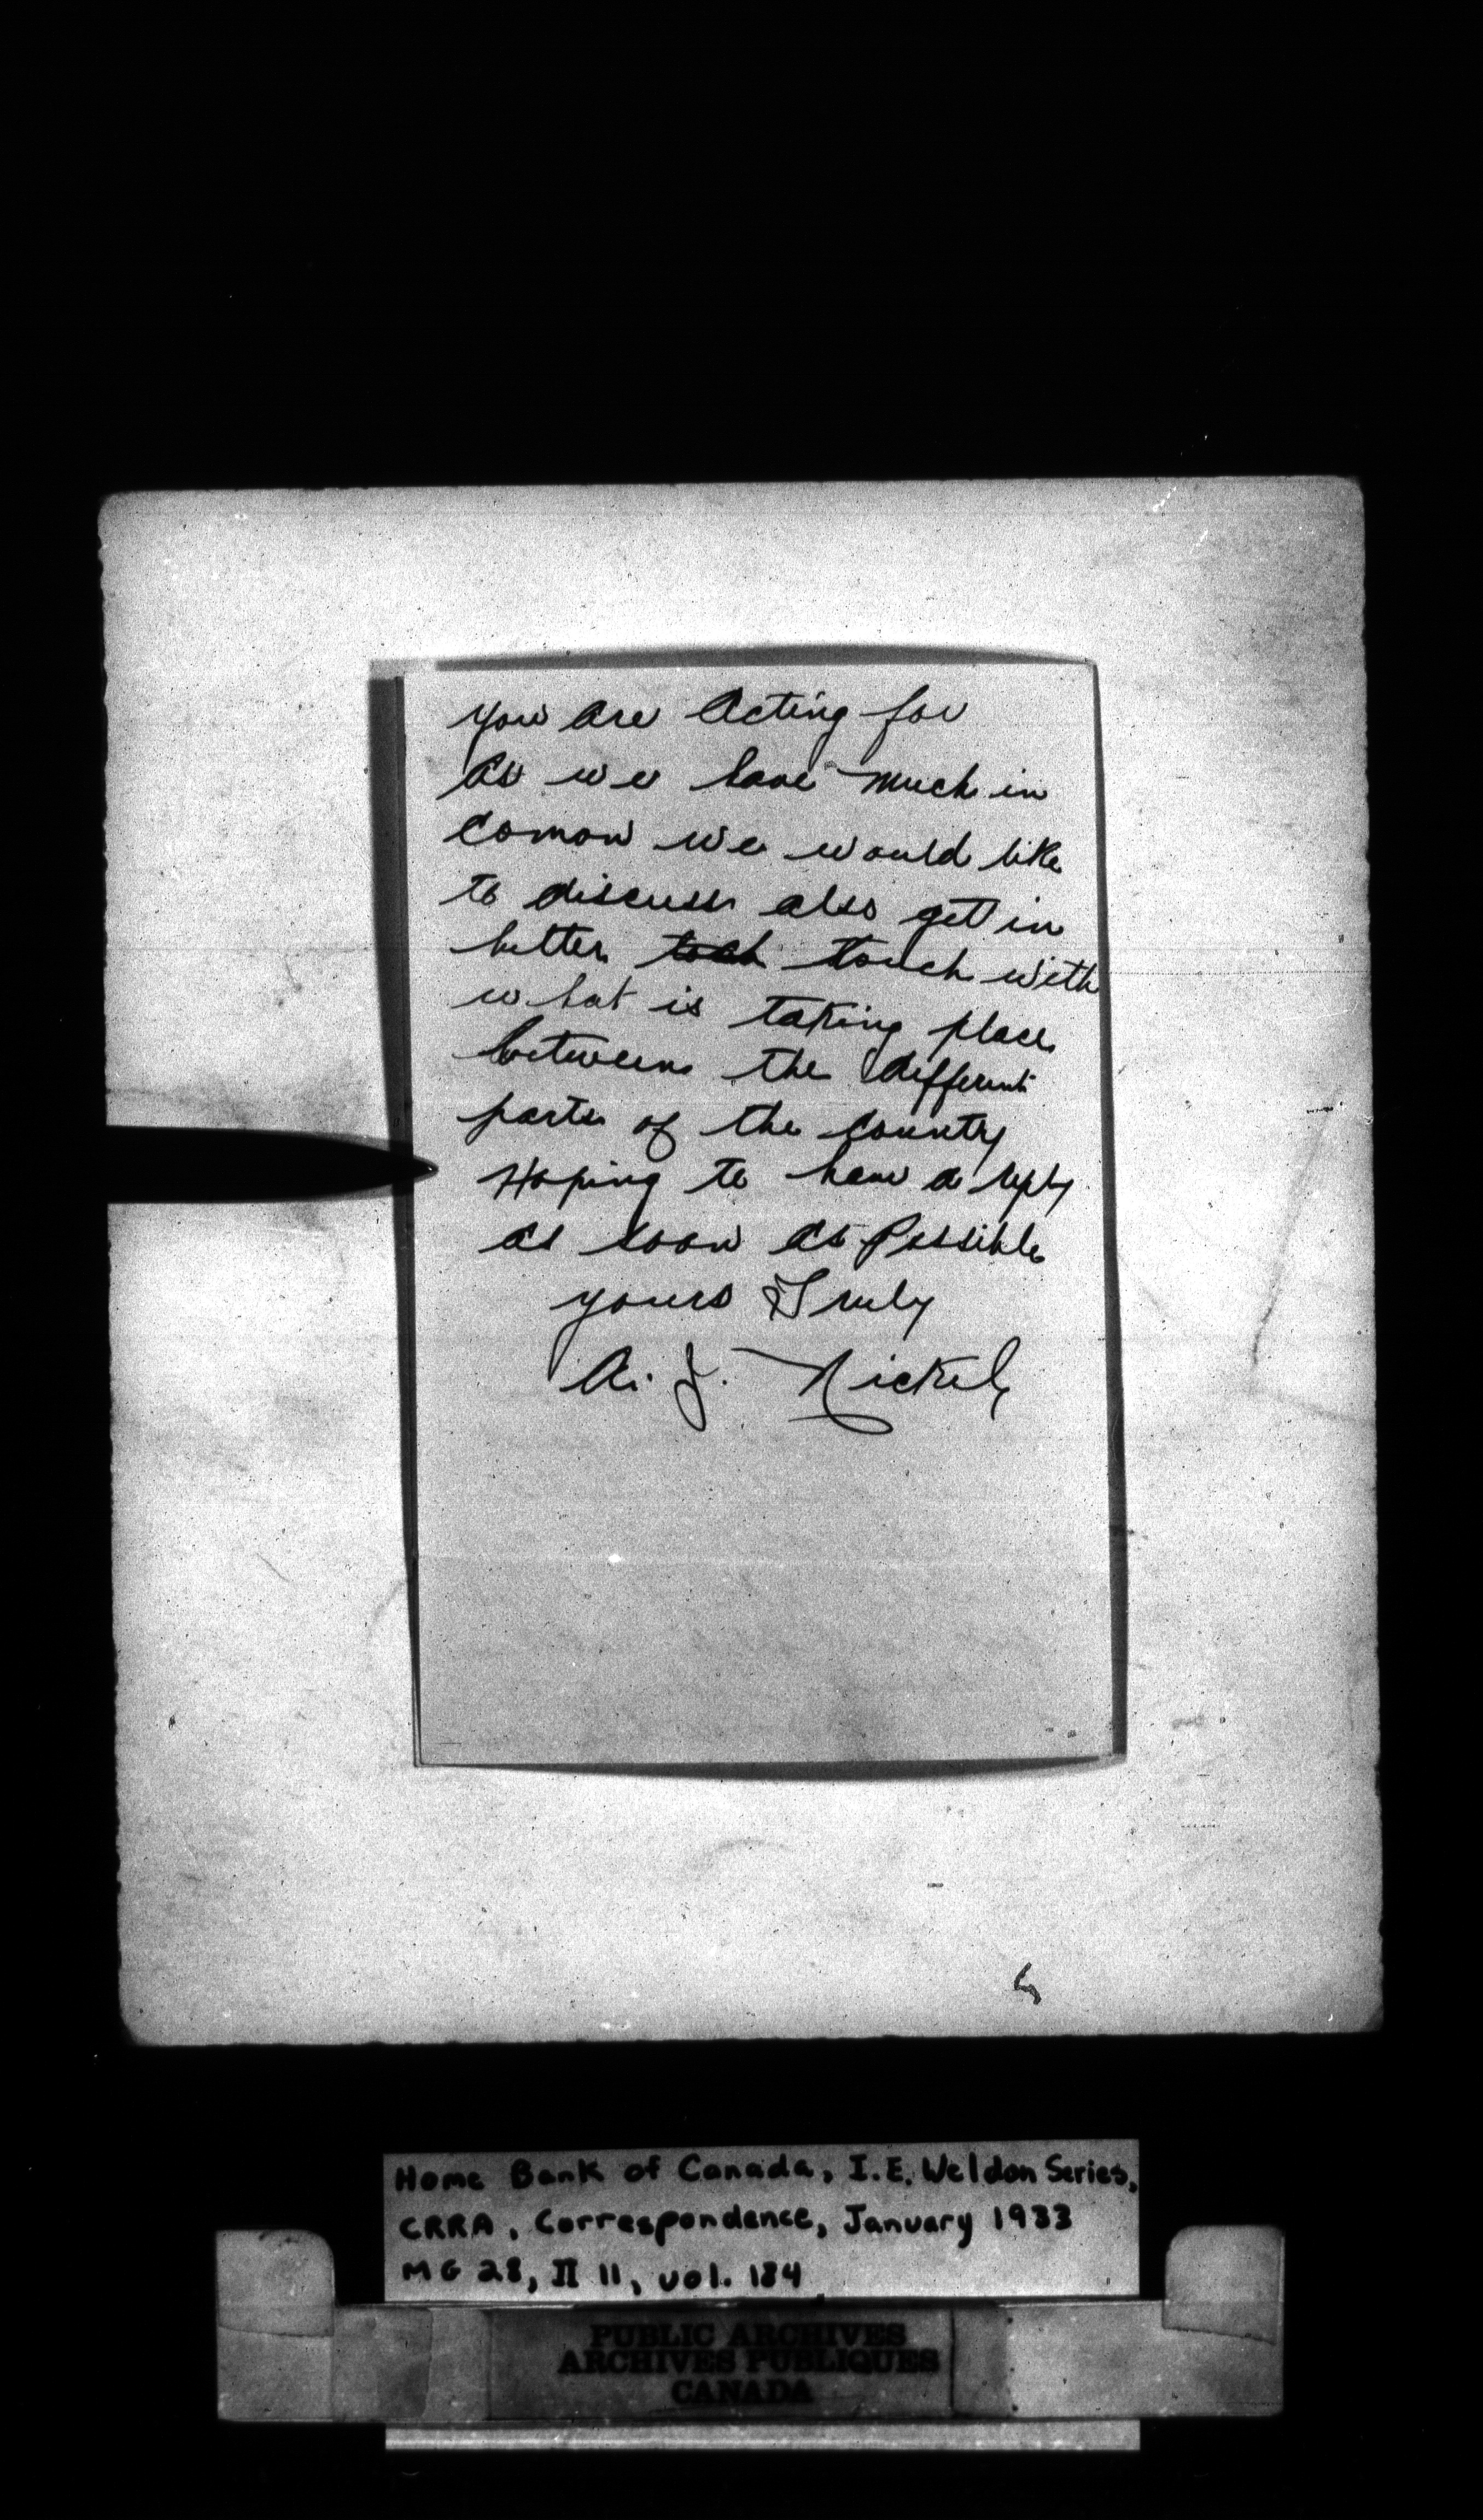 you are acting for
as we have much in
comon we would like
to discuss also get in
better touch with
what is taking place
between the different
parts of the county
Hoping to have a reply
as soon as Possible
yours Truly
A. J. Nickel
Home Bank of Canada, I.E. Weldon Series,
CRRA, Correspondence, January 1933
MG 28, II 11, vol. 184
PUBLIC ARCHIVES
ARCHIVES PUBLIQUES
CANADA